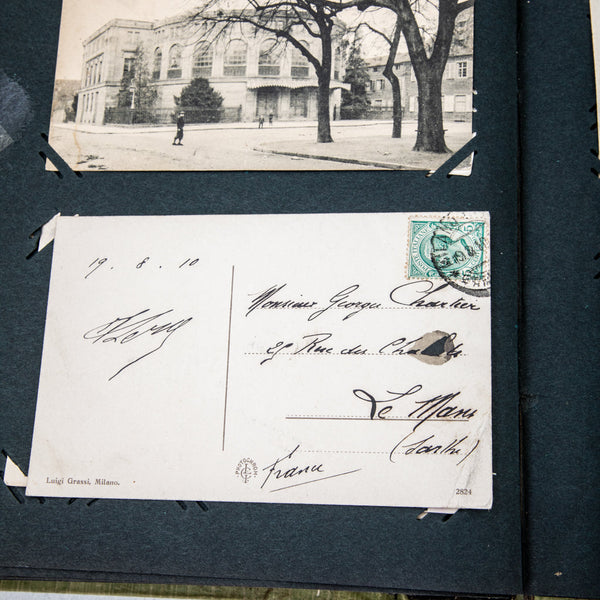 19. 8. 10
Monsieur Georges Chartier
29 Rue des
Le Mans
(Sarthe)
France
PHOTOCHROM
Luigi Grassi, Milano.
2824